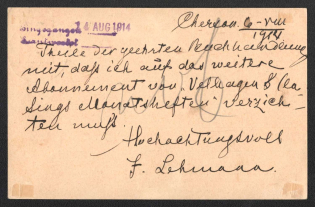 Eingegangen 14 AUG 1914
Beantwortet
Cherson 6-VIII
1914
Theile der geehrten Buchhandlung
mit, daß ich auf das weitere
Abonnement von Velhagen & Kla-
sings Monatsheften verzich-
ten muß.
Hochachtungsvoll
F. Lehmann